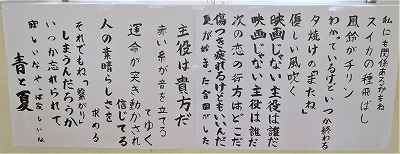 私にも関係あるかもね
スイカの種飛ばし
風鈴がチリン
わかっているけどいつか終わる
夕焼けの「またね」
優しい風吹く
映画じゃない主役は誰だ
映画じゃない主役は誰だ
次の恋の行方はどこだ
傷つき疲れるけどもいいんだ
夏が始まった合図がした
主役は貴方だ
赤い糸が音を立てる
運命が突き動かされ
てゆく
人の素晴らしさを
信じてる
それでもね「繋がり」
求める
しまうんだろうか
いつか忘れられて
寂しいなやっぱ寂しいな
青と夏